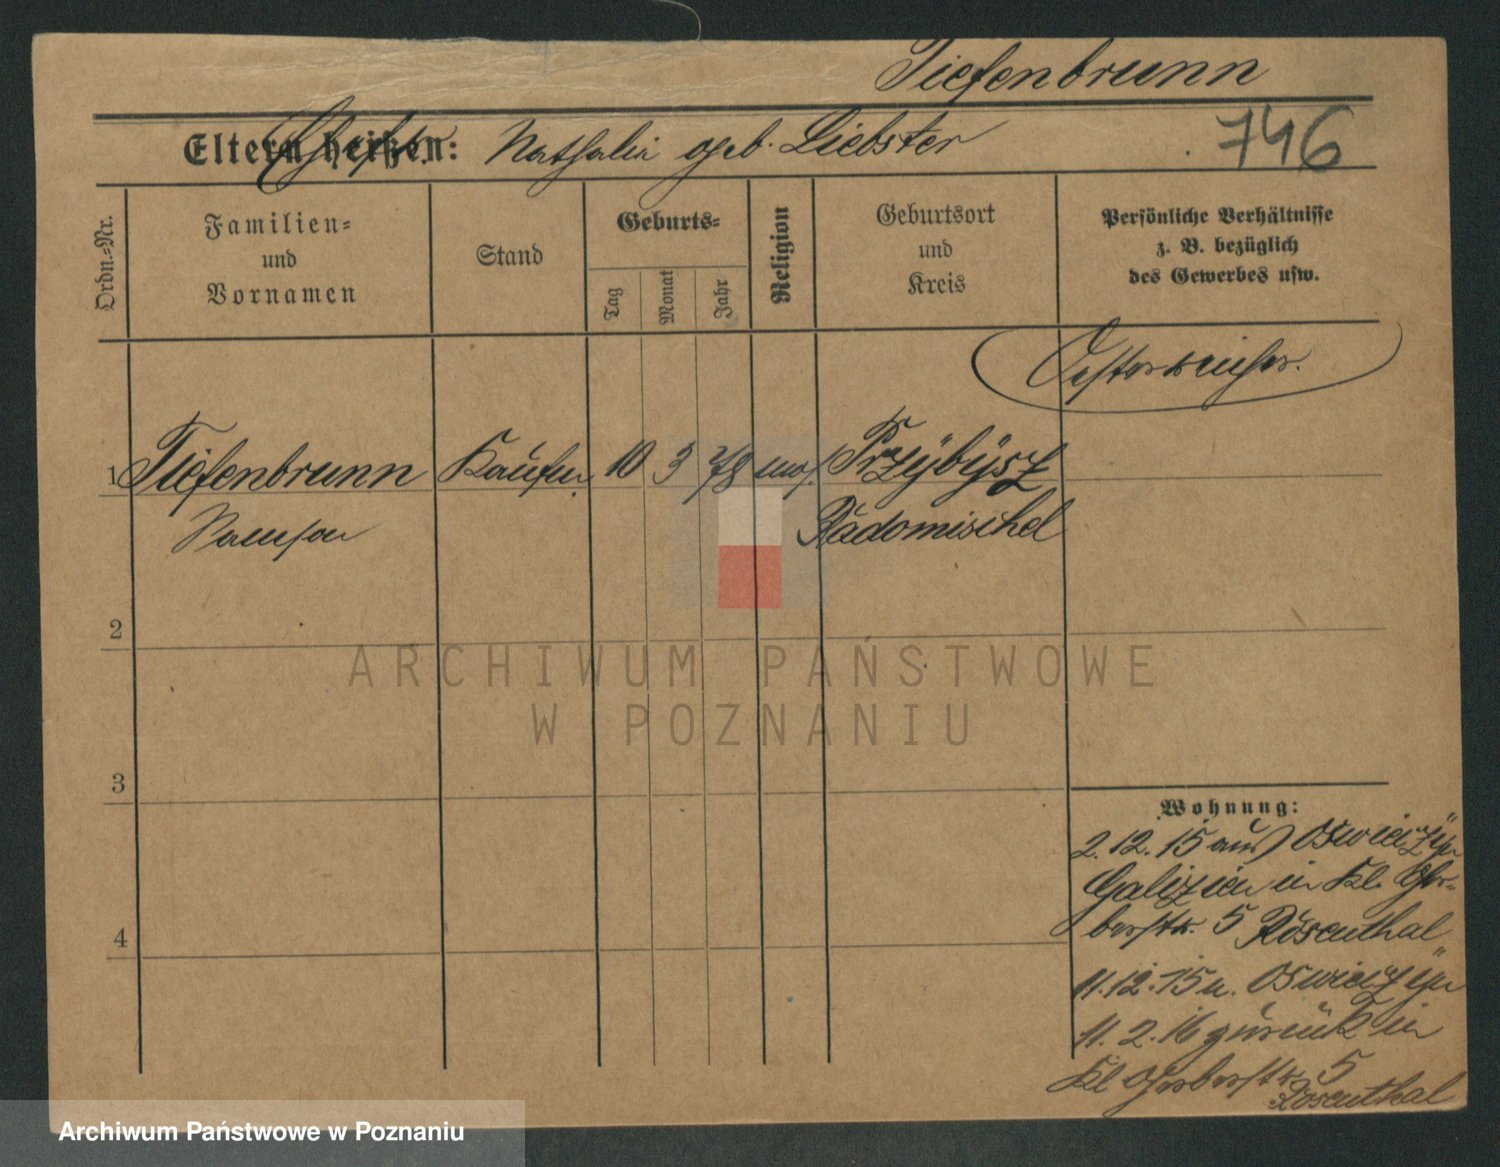 Tiefenbrunn
746
Eltern heißen: Nathalie geb. Liebster
Ordn.=Nr.
Familien=
und
Vornamen
Stand
Geburts=
Tag
Monat
Jahr
Religion
Geburtsort
und
Kreis
Persönliche Verhältnisse
z. B. bezüglich
des Gewerbes usw.
Oesterreicher.
1 Tiefenbrunn Kaufm. 10 3 78 mos. Przybysz
Radomischel
2
3
4
Wohnung:
2.12.15 aus Oswieczyn
Galizien in Kl. Ger-
berstr. 5 Rosenthal
11.12.15 n. Oswieczyn
11.2.16 zurück in
Kl Gerberstr. 5
Rosenthal
ARCHIWUM PAŃSTWOWE
W POZNANIU
Archiwum Państwowe w Poznaniu